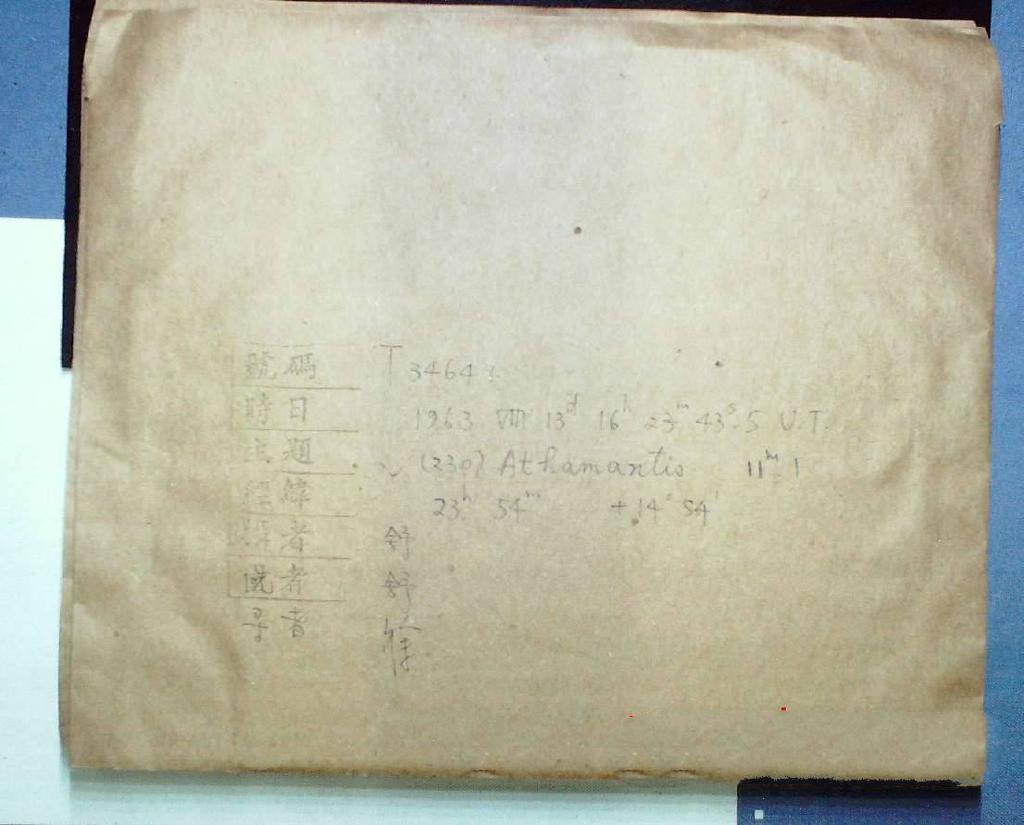 號碼 T 3464
時日 1963 VIII 13ᵈ 16ʰ 23ᵐ 43ˢ.5 U.T.
主題 (230) Athamantis 11ᵐ.1
經緯 23ʰ 54ᵐ +14° 54'
者 舒
者 舒
者